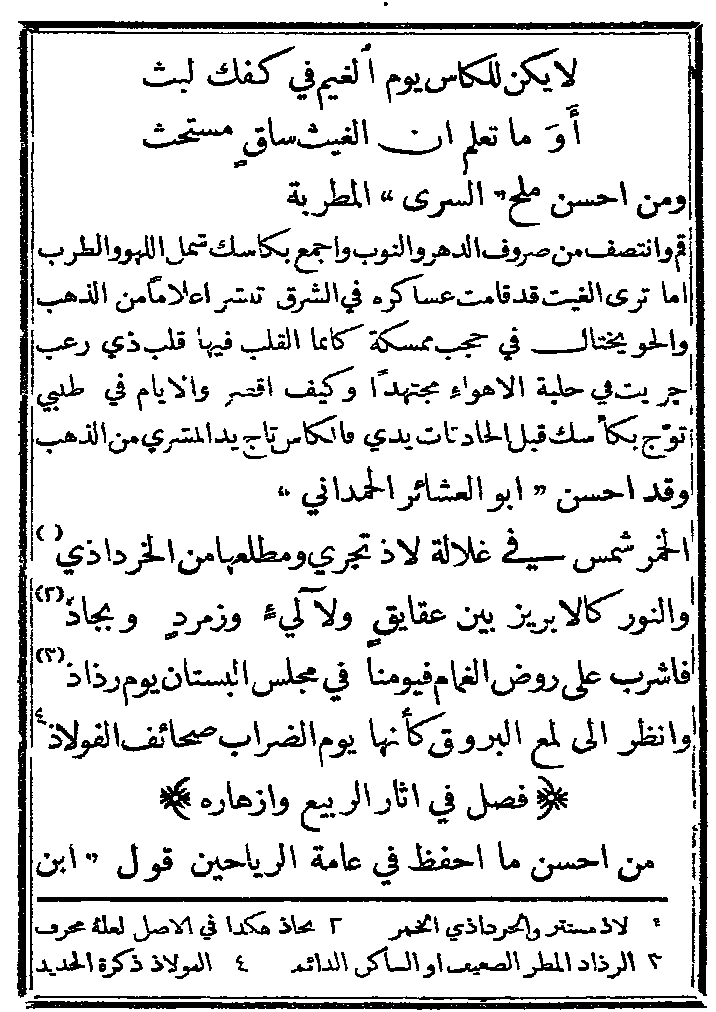 لا يكن للكاس يوم ألغيم في كفك لبث
أَوَ ما تعلم ان الغيث ساقٍ مستحث
ومن احسن ملح « السرى » المطربة
قم وانتصف من صروف الدهر والنوب واجمع بكاسك شمل اللهو والطرب
اما ترى الغيت قد قامت عساكره في الشرق تنشر اعلاماً من الذهب
والجو يختال في حجب ممسكة كانما القلب فيها قلب ذي رعب
جريت في حلبة الاهواء مجتهداً وكيف اقتصر والايام في طلبي
توّج بكأسك قبل الحادثات يدي فالكاس تاج يد المثري من الذهب
وقد احسن « ابو العشائر الحمداني »
الخمر شمس في غلالة لاذ تجري ومطلعها من الخرداذي ( )
والنور كالابريز بين عقايقٍ ولآليءٍ وزمردٍ وبجاذ (٢)
فاشرب على روض الغمام فيومنا في مجلس البستان يوم رذاذ (٣)
وانظر الى لمع البروق كأنها يوم الضراب صحائف الفولاذ ٤
﴿ فصل في اثار الربيع وازهاره ﴾
من احسن ما احفظ في عامة الرياحين قول « ابن
١ لاذ مستتر والخرداذي الخمر ٢ بجاذ هكذا في الاصل لعله محرف
٣ الرذاذ المطر الضعيف او الساكن الدائم ٤ الفولاذ ذكرة الحديد